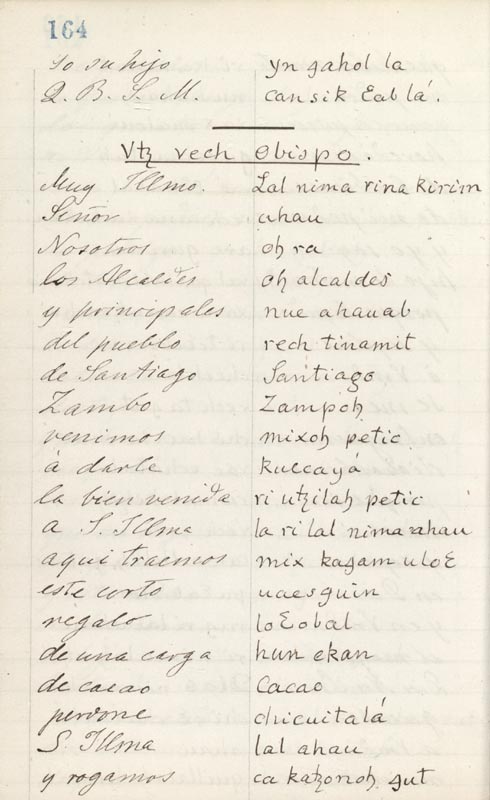 164
so su hijo yn gahol la
Q. B. S. M. cansik Ɛabla.
Vtꜩ vech Obispo.
Muy Illmo. Lal nima rina kirim
Señor ahau
Nosotros oh ra
los Alcaldes oh alcaldes
y principales nue ahauab
del pueblo rech tinamit
de Santiago Santiago
Zambo Zampoh
venimos mixoh petic
á darle kuccayá
la bien venida ri utꜩilah petic
a S. Illma la ri lal nima ahau
aqui traemos mix kagam uloƐ
este corto uaesguin
regalo loƐobal
de una carga hun ekan
de cacao Cacao
perdone chicuitalá
S. Illma lal ahau
y rogamos ca katꜩonoh gut